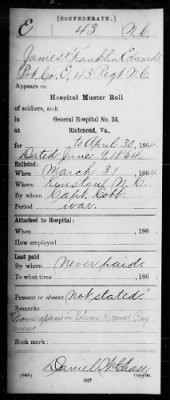 (CONFEDERATE.)
E 43 N.C.
James Franklin Edwards
Pvt. Co. E, 43 Regt N.C.
Appears on
Hospital Muster Roll
of soldiers, sick in
General Hospital No. 24,
at
Richmond, Va.,
for to April 30, 1864.
Dated June 9, 1864.
Enlisted:
When March 31, 1864
Where Kinston, N.C.
By whom Capt. Cobb
Period war.
Attached to Hospital:
When
How employed
Last paid
By whom never paid.
To what time , 186 .
Present or absent "not stated."
Remarks:
Name appears in
Daniel W. Chase
(645) Copyist.